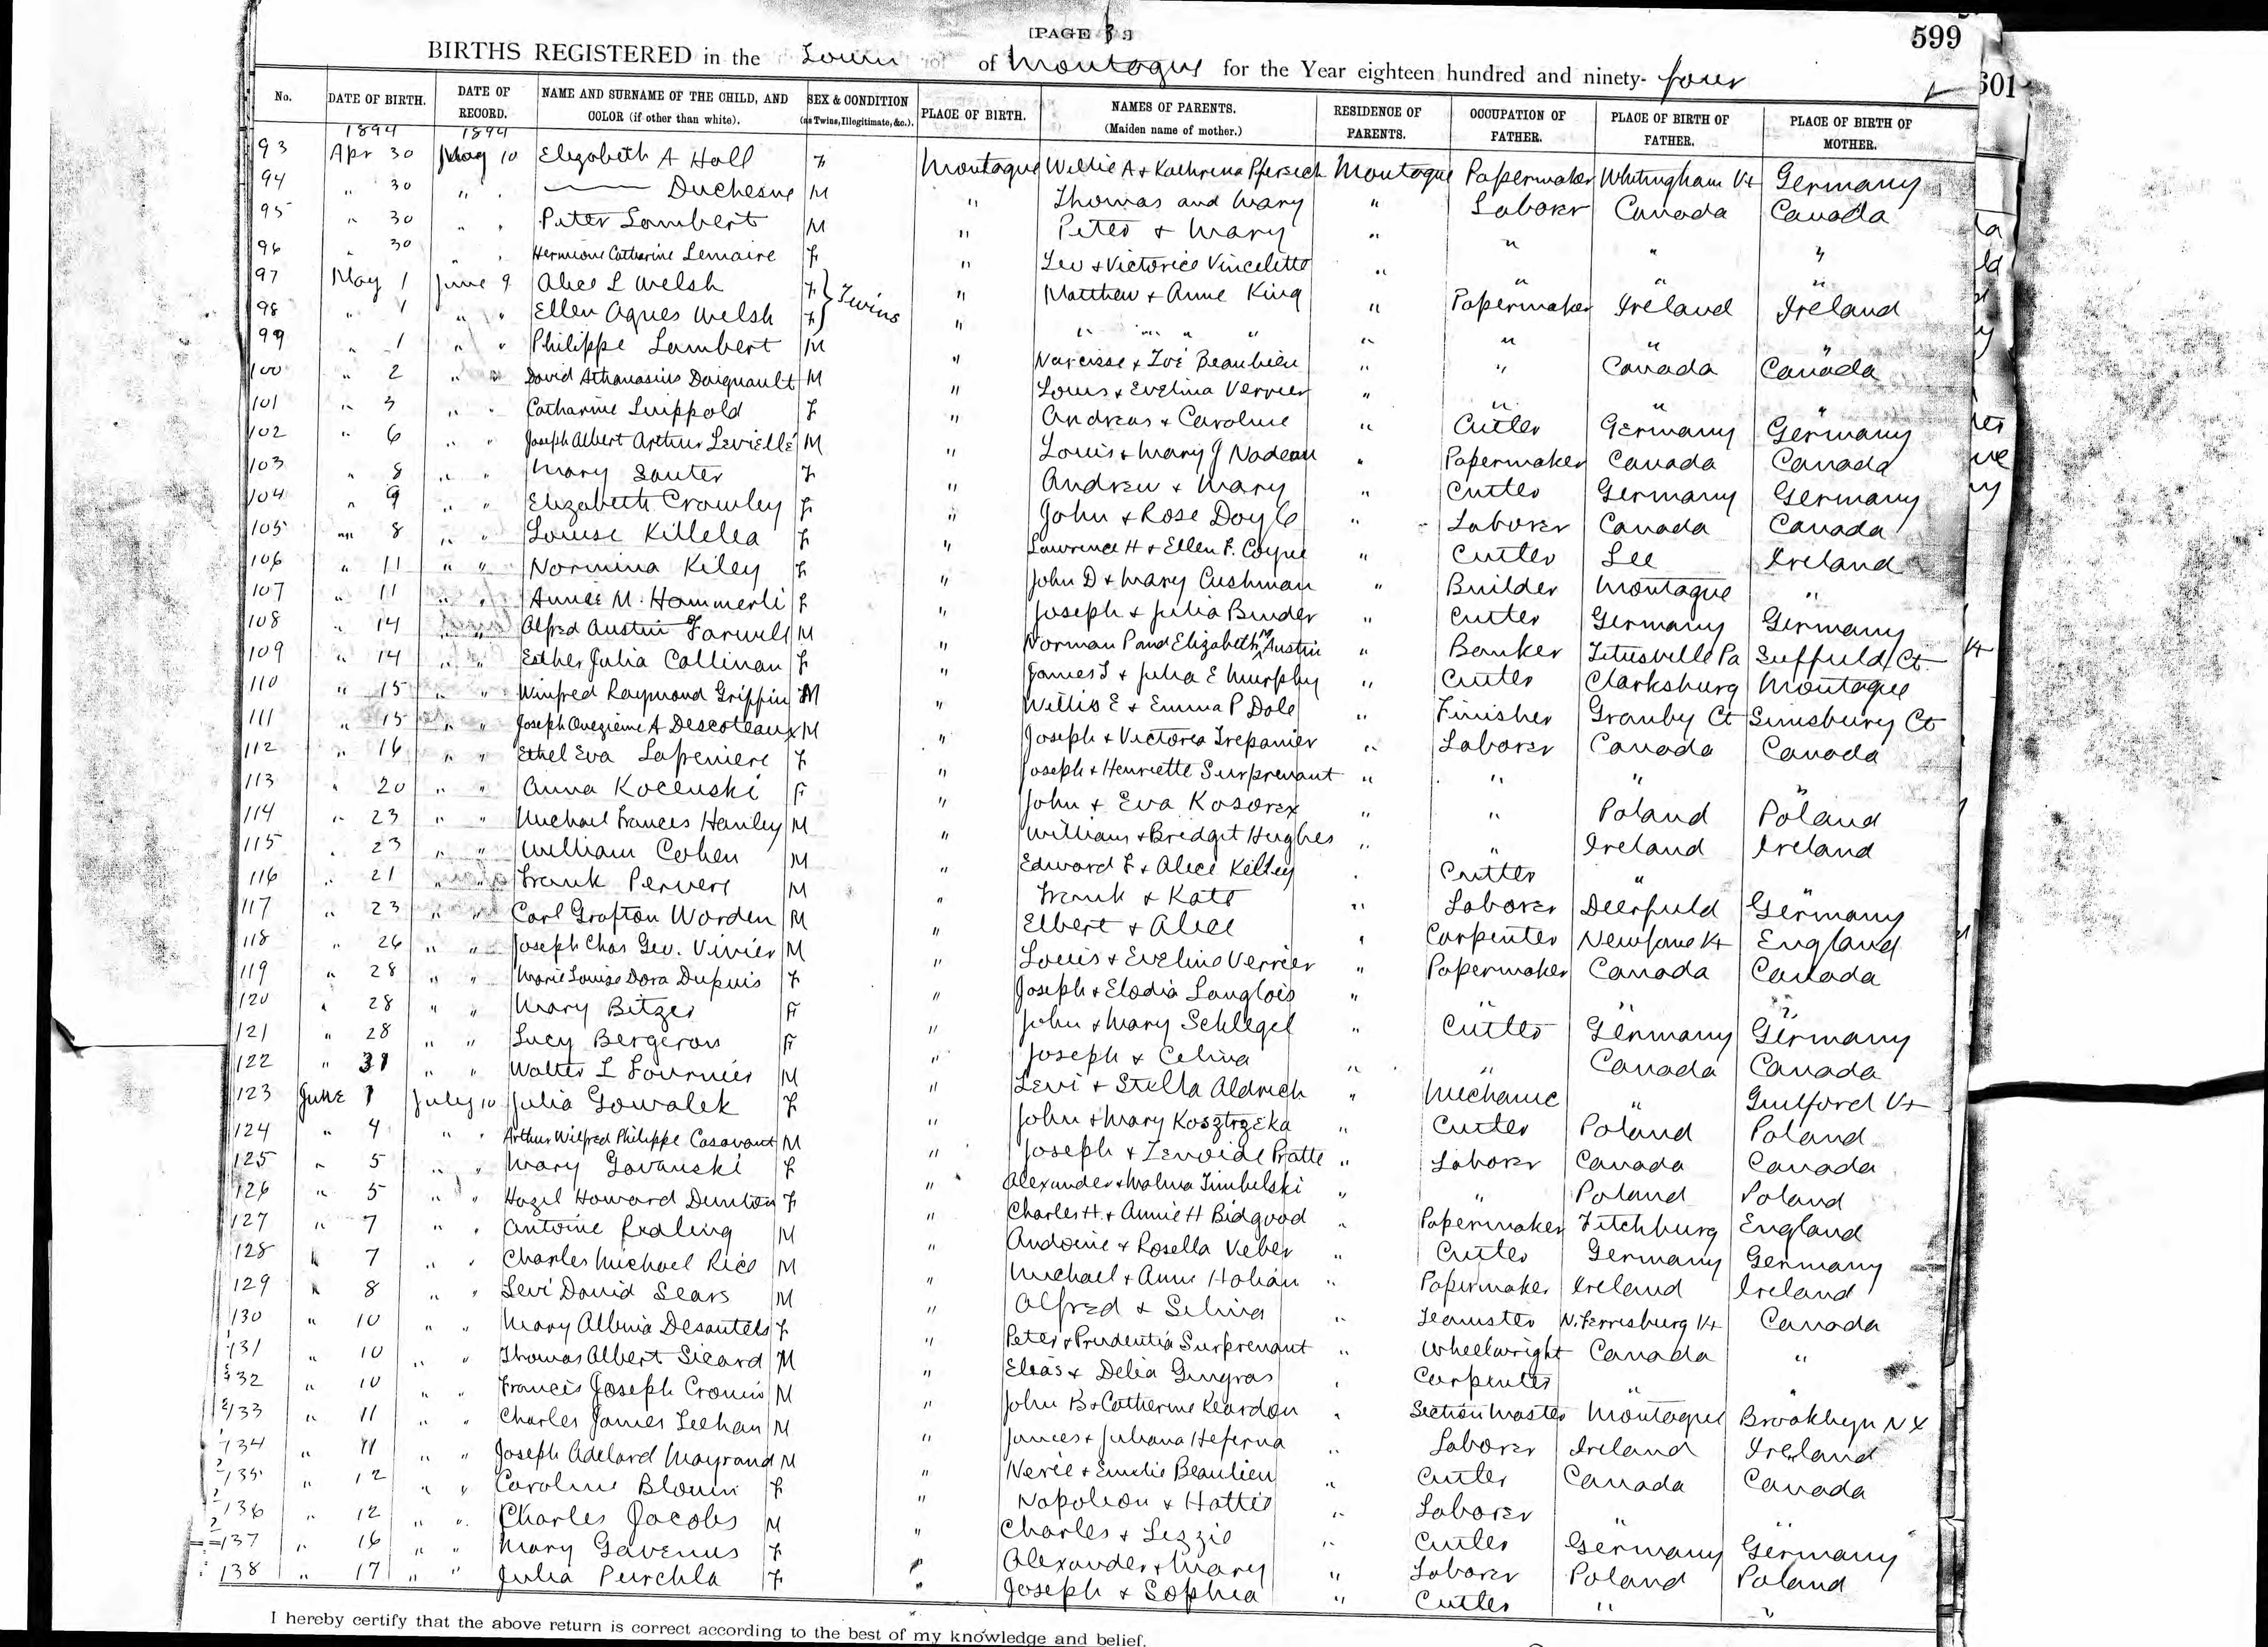 [PAGE 3]
599
BIRTHS REGISTERED in the Town of Montague for the Year eighteen hundred and ninety- four
601
No. DATE OF BIRTH. DATE OF RECORD. NAME AND SURNAME OF THE CHILD, AND COLOR (if other than white). SEX & CONDITION (as Twins, Illegitimate, &c.). PLACE OF BIRTH. NAMES OF PARENTS. (Maiden name of mother.) RESIDENCE OF PARENTS. OCCUPATION OF FATHER. PLACE OF BIRTH OF FATHER. PLACE OF BIRTH OF MOTHER.
1894 1894
93 Apr 30 May 10 Elizabeth A Hall F Montague Willie A & Kathrina Pfersich Montague Papermaker Whitingham Vt Germany
94 " 30 " " —— Duchesne M " Thomas and Mary " Laborer Canada Canada
95 " 30 " " Peter Lambert M " Peter & Mary " " " "
96 " 30 " " Hermione Catharine Lemaire F " Leo & Victorice Vincelette " " " "
97 May 1 June 9 Alice L Welsh F } Twins " Matthew & Anne King " Papermaker Ireland Ireland
98 " 1 " " Ellen Agnes Welsh F " " " " " " " " "
99 " 1 " " Philippe Lambert M " Narcisse & Zoé Beaubien " " Canada Canada
100 " 2 " " David Athanasius Daignault M " Louis & Evelina Verrier " " " "
101 " 3 " " Catharine Luippold F " Andreas & Caroline " Cutler Germany Germany
102 " 6 " " Joseph Albert Arthur Levielle M " Louis & Mary J Nadeau " Papermaker Canada Canada
103 " 8 " " Mary Sauter F " Andrew & Mary " Cutler Germany Germany
104 " 9 " " Elizabeth Crowley F " John & Rose Doyle " Laborer Canada Canada
105 " 8 " " Louise Killelea F " Lawrence H & Ellen F. Coyne " Cutler Lee Ireland
106 " 11 " " Normina Kiley F " John D & Mary Cushman " Builder Montague "
107 " 11 " " Annie M. Hammerli F " Joseph & Julia Binder " Cutler Germany Germany
108 " 14 " " Alfred Austin Farwell M " Norman P and Elizabeth M Austin " Banker Titusville Pa Suffield Ct
109 " 14 " " Esther Julia Callinan F " James T & Julia E Murphy " Cutler Clarksburg Montague
110 " 15 " " Winfred Raymond Griffin M " Willis E & Emma P Dole " Finisher Granby Ct Simsbury Ct
111 " 15 " " Joseph Onezieme A Descoteaux M " Joseph & Victorea Trepanier " Laborer Canada Canada
112 " 16 " " Ethel Eva Lapreniere F " Joseph & Henriette Surprenant " " " "
113 " 20 " " Anna Kocenski F " John & Eva Kosorex " " Poland Poland
114 " 23 " " Michael Frances Hanley M " William & Bridget Hughes " " Ireland Ireland
115 " 23 " " William Cohen M " Edward F & Alice Kelley " Cutler " "
116 " 21 " " Frank Pervere M " Frank & Kate " Laborer Deerfield Germany
117 " 23 " " Carl Grafton Worden M " Elbert & Alice " Carpenter Newfane Vt England
118 " 26 " " Joseph Chas Geo. Vivier M " Louis & Eveline Verrier " Papermaker Canada Canada
119 " 28 " " Marie Louise Dora Dupuis F " Joseph & Elodia Langlois " " " "
120 " 28 " " Mary Bitzer F " John & Mary Schlegel " Cutler Germany Germany
121 " 28 " " Lucy Bergeron F " Joseph & Celina " " Canada Canada
122 " 31 " " Walter L Fournier M " Levi & Stella Aldrich " Mechanic " Guilford Vt
123 June 1 July 10 Julia Gowalek F " John & Mary Kosztrzeka " Cutler Poland Poland
124 " 4 " " Arthur Wilfred Philippe Casavant M " Joseph & Zenoide Pratte " Laborer Canada Canada
125 " 5 " " Mary Govanski F " Alexander & Malina Timbelski " " Poland Poland
126 " 5 " " Hazel Howard Dunton F " Charles H. & Annie H Bidgood " Papermaker Fitchburg England
127 " 7 " " Antoine Redling M " Andoine & Rosella Veber " Cutler Germany Germany
128 " 7 " " Charles Michael Rice M " Michael & Annie Hohan " Papermaker Ireland Ireland
129 " 8 " " Levi David Sears M " Alfred & Selina " Teamster N. Ferrisburg Vt Canada
130 " 10 " " Mary Albina Desautels F " Peter & Prudentia Surprenant " Wheelwright Canada "
131 " 10 " " Thomas Albert Sicard M " Elias & Delia Gingras " Carpenter " "
132 " 10 " " Francis Joseph Cronin M " John B & Catherine Reardon " Section Master Montague Brooklyn N Y
133 " 11 " " Charles James Leehan M " James & Juliana Heferna " Laborer Ireland Ireland
134 " 11 " " Joseph Adelard Mayrand M " Nerée & Emelie Beaulieu " Cutler Canada Canada
135 " 12 " " Caroline Blouin F " Napoleon & Hattie " Laborer " "
136 " 12 " " Charles Jacobs M " Charles & Lizzie " Cutler Germany Germany
137 " 16 " " Mary Gavenus F " Alexander & Mary " Laborer Poland Poland
138 " 17 " " Julia Purchla F " Joseph & Sophia " Cutler " "
I hereby certify that the above return is correct according to the best of my knowledge and belief.